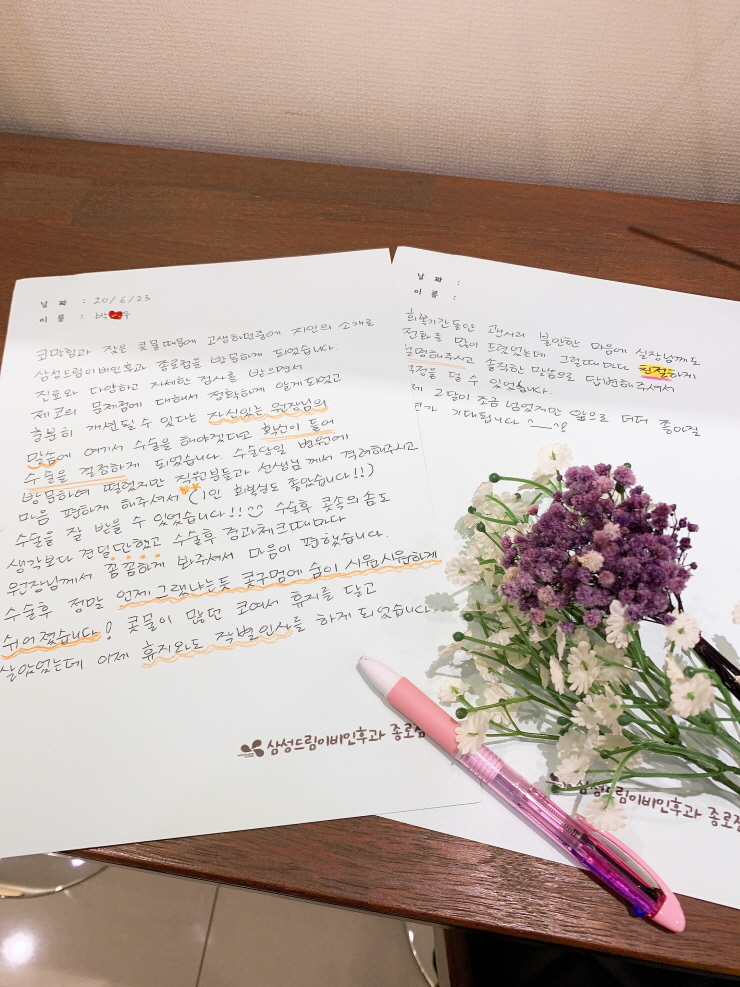 날 짜 : 20/6/23
이 름 : 박 우
코막힘과 잦은 콧물때문에 고생하던중에 지인의 소개로
삼성드림이비인후과 종로점을 방문하게 되었습니다.
진료와 다양하고 자세한 검사를 받으면서
제 코의 문제점에 대해서 정확하게 알게되었고
충분히 개선될 수 있다는 자신있는 원장님의
말씀에 여기서 수술을 해야겠다고 확신이 들어
수술을 결정하게 되었습니다. 수술당일 병원에
방문하여 떨렸지만 직원분들과 선생님께서 격려해주시고
마음 편하게 해주셔서 (1인 회복실도 좋았습니다!!)
수술을 잘 받을 수 있었습니다!! 수술후 콧속의 솜도
생각보다 견딜만했고 수술후 경과체크때마다
원장님께서 꼼꼼하게 봐주셔서 마음이 편했습니다.
수술후 정말 언제 그랬냐는듯 콧구멍에 숨이 시원시원하게
쉬어졌습니다! 콧물이 많던 코여서 휴지를 달고
살았었는데 이제 휴지와도 작별인사를 하게 되었습니다.
삼성드림이비인후과 종로점
날 짜 :
이 름 :
회복기간동안 괜시리 불안한 마음에 실장님께도
전화를 많이 드렸었는데 그럴때마다 친절하게
설명해주시고 솔직한 말씀으로 답변해주셔서
걱정을 덜 수 있었습니다.
제 그달이 조금 넘었지만 앞으로 더더 좋아질
코가 기대됩니다 ^__^!
삼성드림이비인후과 종로점